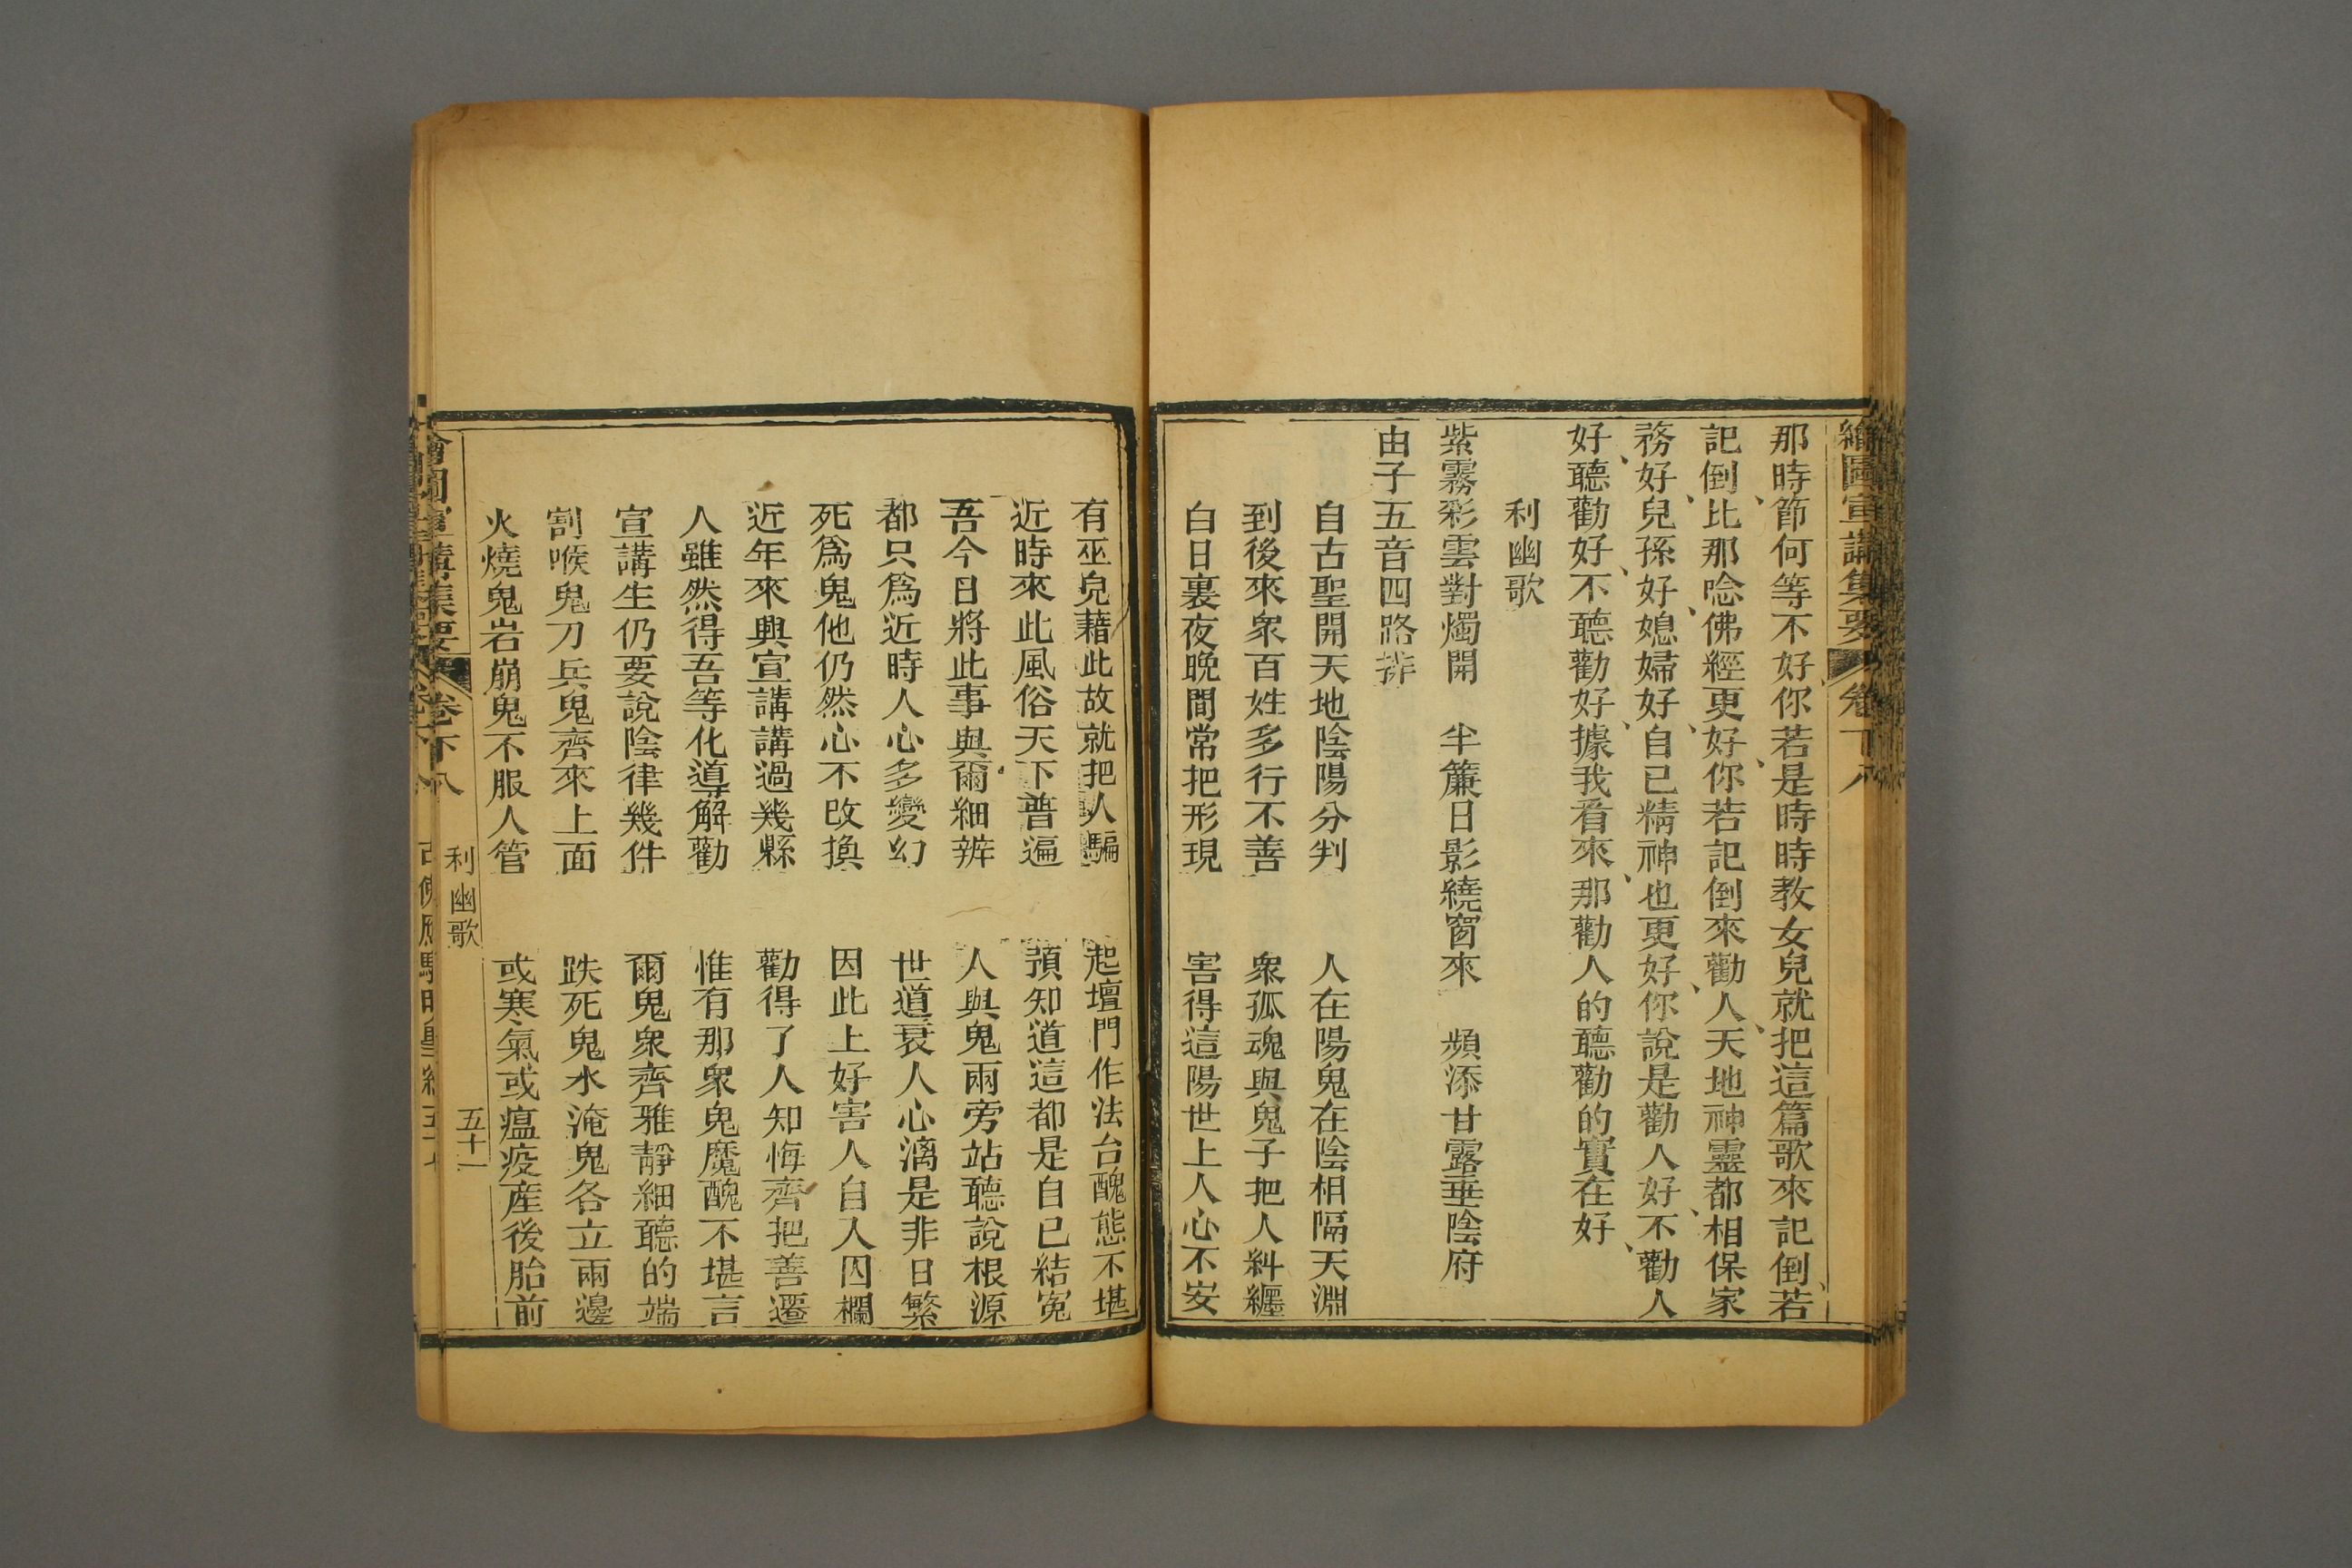 繪圖宣講集要 卷下八
那時節何等不好你若是時時教女兒就把這篇歌來記倒若
記倒比那唸佛經更好你若記倒來勸人天地神靈都相保家
務好兒孫好媳婦好自已精神也更好你說是勸人好不勸人
好聽勸好不聽勸好據我看來那勸人的聽勸的實在好
利幽歌
紫霧彩雲對燭開 半簾日影繞窗來 頻添甘露垂陰府
由子五音四路排
自古聖開天地陰陽分判 人在陽鬼在陰相隔天淵
到後來衆百姓多行不善 衆孤魂與鬼子把人糾纏
白日裏夜晚間常把形現 害得這陽世上人心不安
有巫皃藉此故就把人騙 起壇門作法台醜態不堪
近時來此風俗天下普遍 預知道這都是自已結冤
吾今日將此事與爾細辨 人與鬼兩旁站聽說根源
都只爲近時人心多變幻 世道衰人心漓是非日繁
死爲鬼他仍然心不改換 因此上好害人自入囚欄
近年來興宣講講過幾縣 勸得了人知悔齊把善遷
人雖然得吾等化導解勸 惟有那衆鬼魔醜不堪言
宣講生仍要說陰律幾件 爾鬼衆齊雅靜細聽的端
割喉鬼刀兵鬼齊來上面 跌死鬼水淹鬼各立兩邊
火燒鬼岩崩鬼不服人管 或寒氣或瘟疫産後胎前
繪圖宣講集要 卷下八 利幽歌 五十一